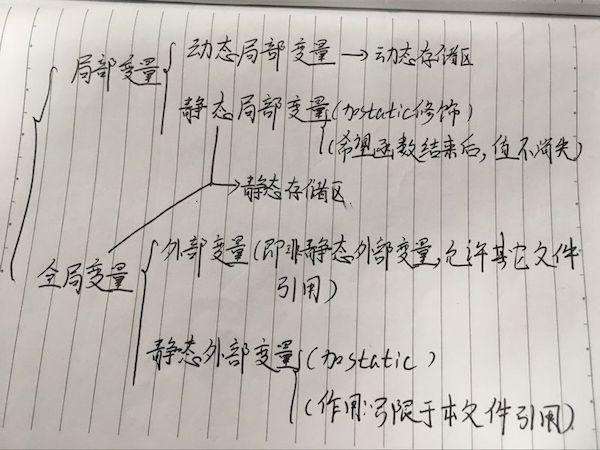 局部变量
动态局部变量→动态存储区
静态局部变量(加static修饰)
(希望函数结束后,值不消失)
→静态存储区
全局变量
外部变量(即非静态外部变量,允许其它文件
引用)
静态外部变量(加static)
(作用:只限于本文件引用)